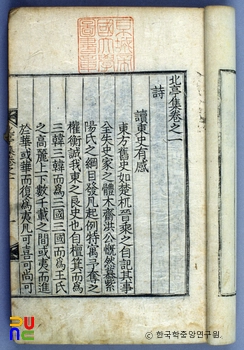 北亭集卷之一
詩
讀東史有感
東方舊史如楚杌晉乘之自詔其事
全失史家之體木齋洪公慨然紫
陽氏之綱目發凡起例特寓予奪之
權衡誠我東之良史也自檀箕而爲
三韓三韓而爲三國三國而爲王氏
之高麗上下數千載之間或夷而進
於華或華而復爲夷凡可喜可尚可
京城帝國大學圖書章
ⓒ 한국학중앙연구원